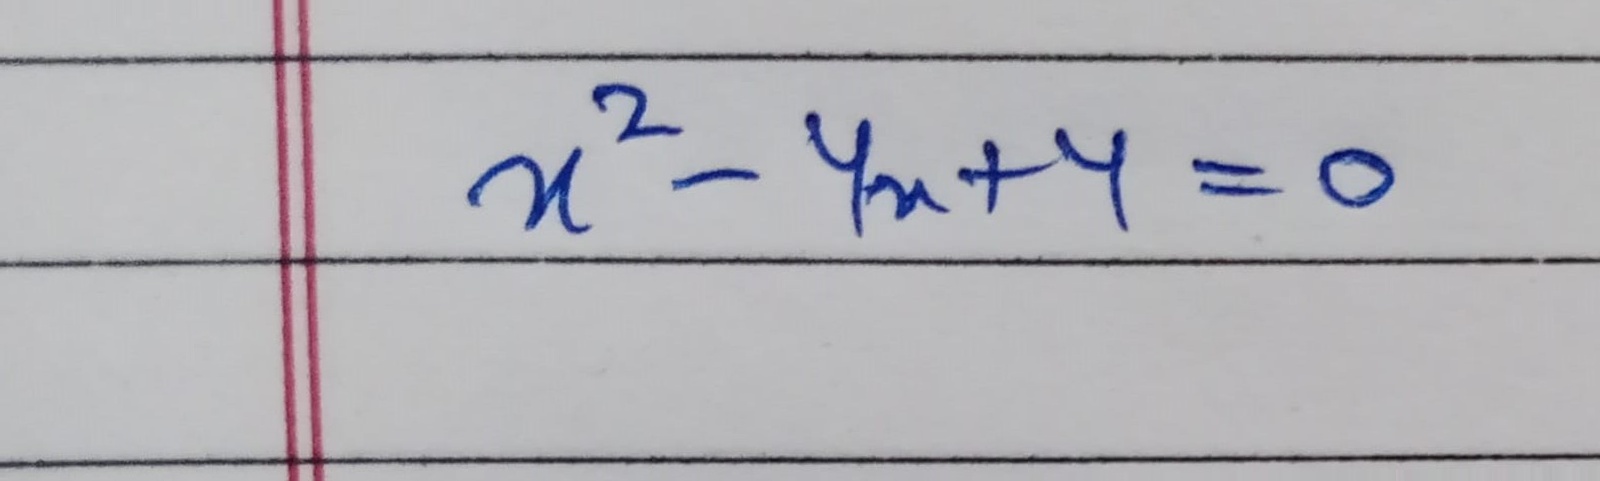 x² - 4x + 4 = 0